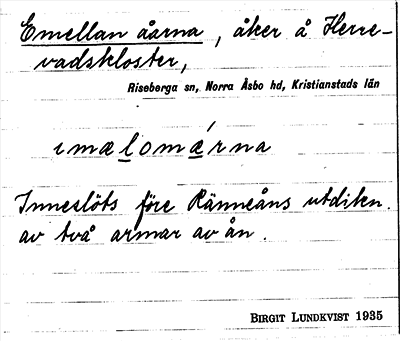 Emellan åarna, åker å Herre-
vadskloster,
Riseberga sn, Norra Åsbo hd, Kristianstads län
ımælomǽrna
Inneslöts före Ränneåns utdikn.
av två armar av ån.
BIRGIT LUNDKVIST 1935